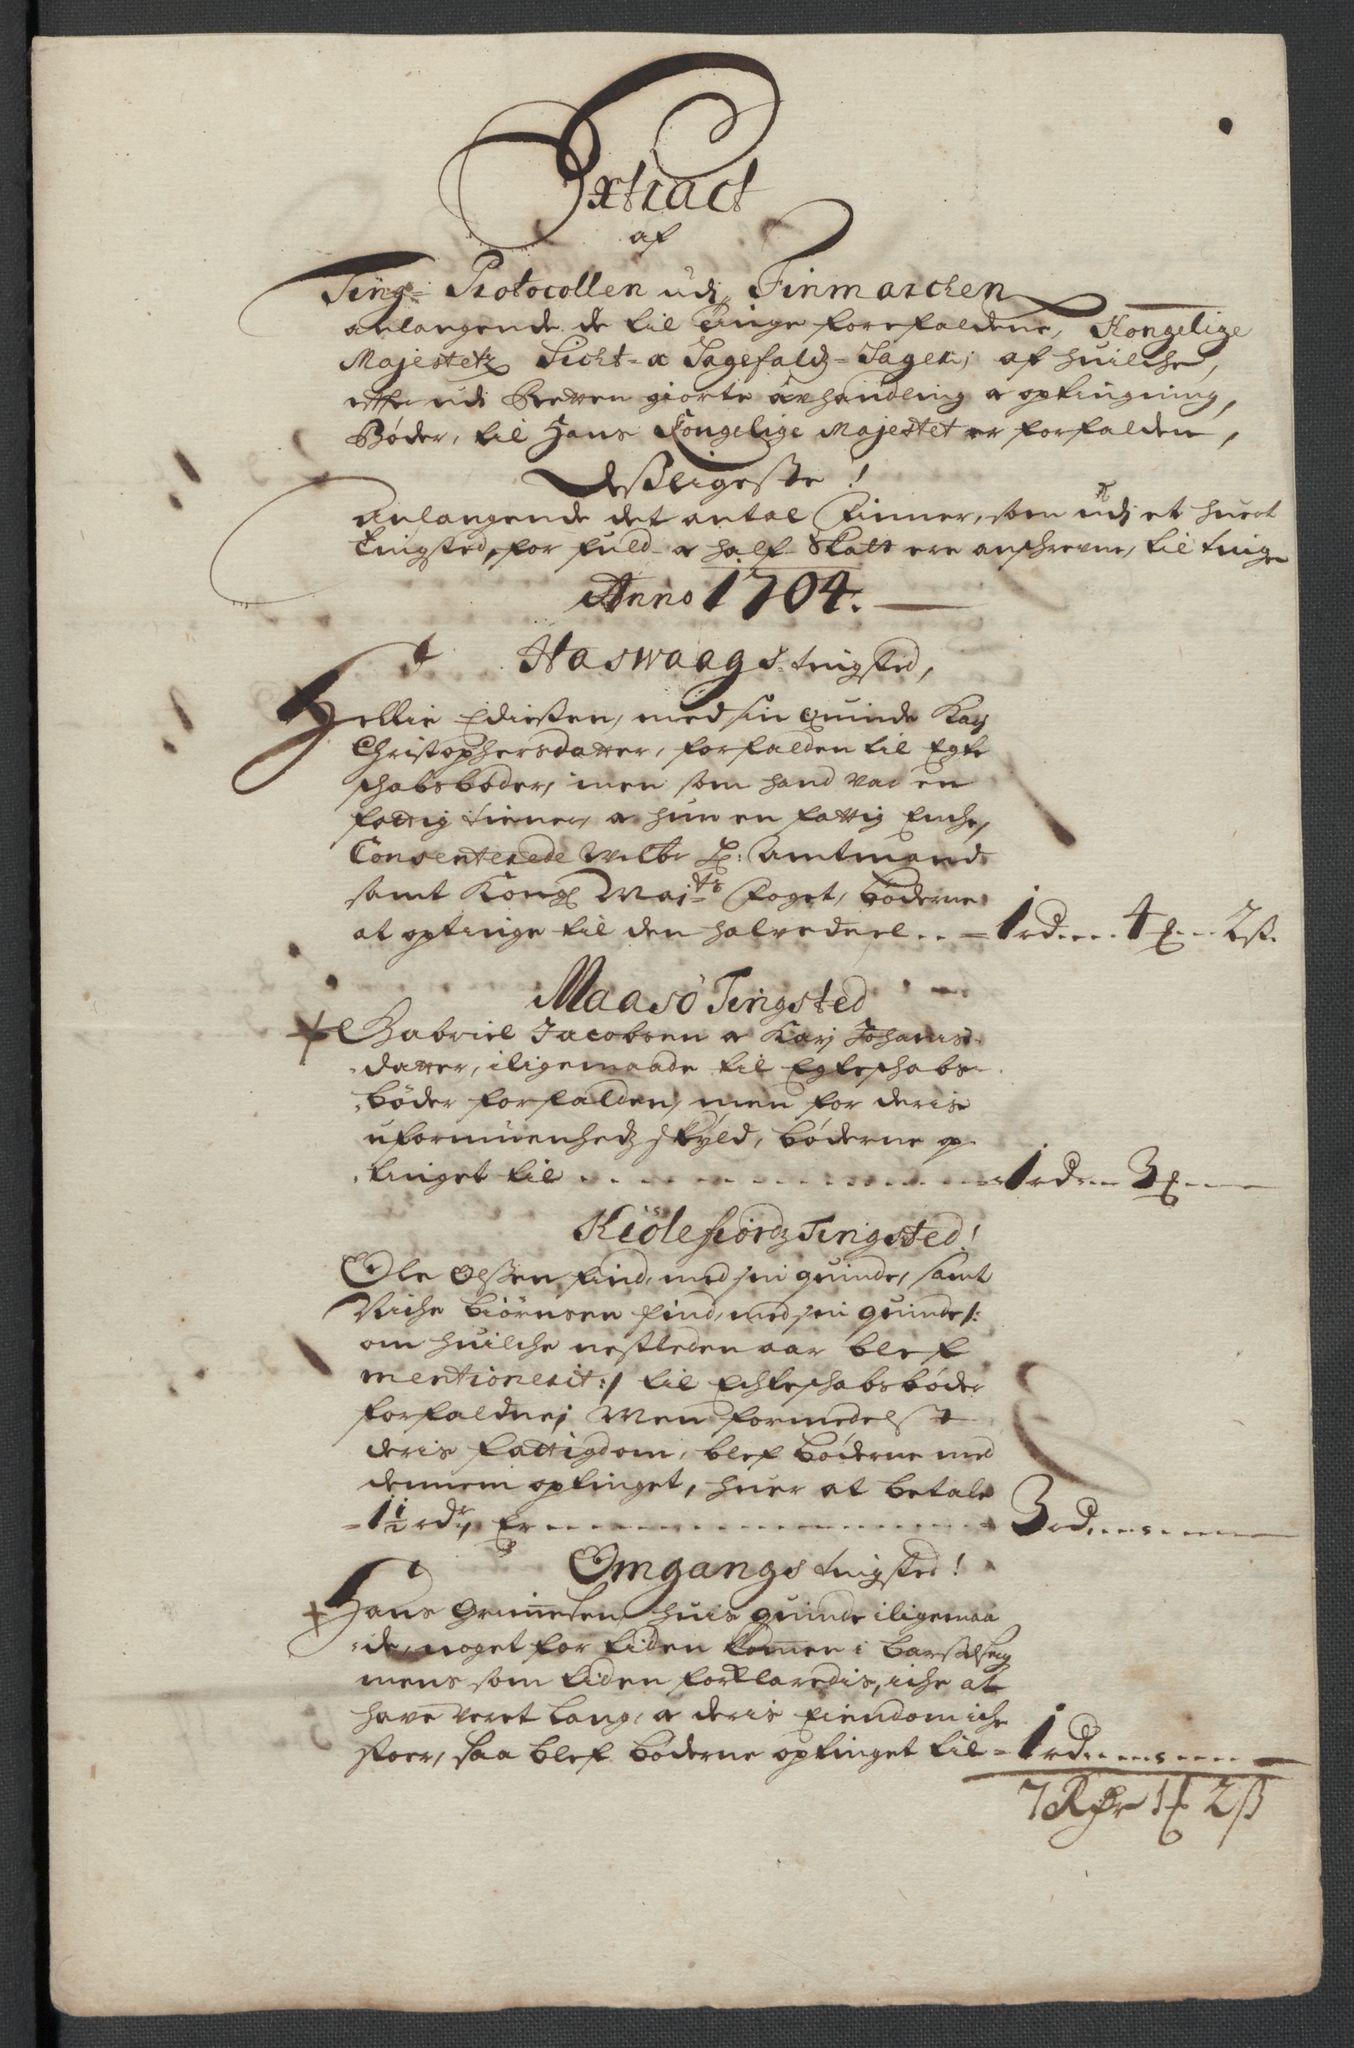 Extract
af
Ting- Protocollen udj Finmarchen
anlangende de til Tinge forefaldene, Kongelige
Majestetz Sicht- & Sagefaldz- Sager; af huilche,
effter udj Retten giorte afhandling & optingning,
Bøder, til Hans Kongelige Majestet er forfalden,
Desligeste!
anlangende det antal Finner, som udj et huert
Tingsted, for fuld- & half- Skatt ere anschrevne, til tinge
Anno 1704.
Haswaags tingsted,
med sin quinde Karj
Christophersdatter, forfalden til Egte
schabsbøder, men som hand var en
fattig tiener, & hun en fattig Enche,
Consenterede Welbr Hr: Amtmand
samt Kongl Maits Foget, bøderne
at optinge til den halvedeel .. = 1 rd... 4 ... 2 s.
Maasø Tingsted
Gabriel Jacobsen & Karj Johanis-
datter, iligemaade til Egteschabs-
bøder forfalden, men for deris
uformuenhedz skyld, bøderne op-
tinget til ... = 1 rd... 3 ...
Kiølefiordz Tingsted!
Ole Olssen find, med sin quinde, samt
Niche Biørnsen find, med sin quinde /:
om huilche nestleden aar blef
mentionerit :/ til Echteschabsbøder
forfaldne; Men formedelst
deris fattigdom, blef bøderne med
dennem optinget, huer at betale
= 1½ rdr, Er ... 3 rd...
Omgangs tingsted!
Hans Grimesen huis quinde iligemaa
-de, noget for tiden komen i barselseng
mens som tiden forklaredis, iche at
have veret lang, & deris Eiendom iche
stoer, saa blef bøderne optinget til = 1 rd...
7 Rdr 1 2 ß